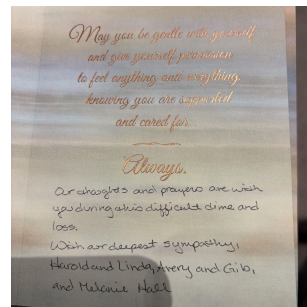 May you be gentle with yourself
and give yourself permission
to feel anything and everything,
knowing you are supported
and cared for.
Always.
Our thoughts and prayers are with
you during this difficult time and
loss.
With our deepest sympathy,
Harold and Linda, Avery and Gib,
and Melanie Hall